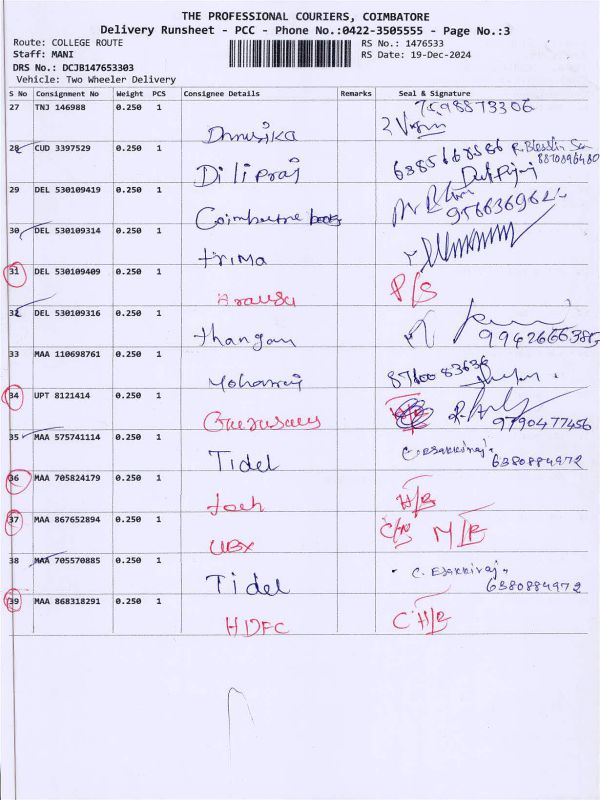 THE PROFESSIONAL COURIERS, COIMBATORE
Delivery Runsheet - PCC - Phone No.:0422-3505555 - Page No.:3
Route: COLLEGE ROUTE RS No.: 1476533
Staff: MANI RS Date: 19-Dec-2024
DRS No.: DCJB147653303
Vehicle: Two Wheeler Delivery
S No Consignment No Weight PCS Consignee Details Remarks Seal & Signature
27 TNJ 146988 0.250 1 7598873306
28 CUD 3397529 0.250 1 Dilipraj 6385668586
29 DEL 530109419 0.250 1 Coimbatore books
30 DEL 530109314 0.250 1 trima
31 DEL 530109409 0.250 1 P/S
32 DEL 530109316 0.250 1 thangam 9942666385
33 MAA 110698761 0.250 1 Mohanraj
34 UPT 8121414 0.250 1 9790477456
35 MAA 575741114 0.250 1 Tidel C. Esakkiraj 6380884972
36 MAA 705824179 0.250 1
37 MAA 867652894 0.250 1 UBX
38 MAA 705570885 0.250 1 Tidel C. Esakkiraj 6380884972
39 MAA 868318291 0.250 1 HDFC